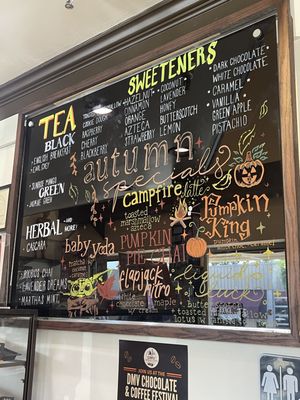 TEA
BLACK
• ENGLISH BREAKFAST
• EARL GREY
GREEN
• JASMINE GREEN
HERBAL AND MORE!
• CASCARA
• ROOIBOS CHAI
• LAVENDER DREAMS
• MARTHAS MINT
SWEETENERS
RASPBERRY
CHERRY
BLACKBERRY
HAZELNUT
CINNAMON
ORANGE
AZTECA
STRAWBERRY
• COCONUT
LAVENDER
HONEY
BUTTERSCOTCH
LEMON
• DARK CHOCOLATE
WHITE CHOCOLATE
• CARAMEL
• VANILLA
• GREEN APPLE
PISTACHIO
autumn
specials
campfire latte
toasted
marshmallow
azteca
Pumpkin
King
baby yoda
PUMPKIN
PIE
flapjack
nitro
maple
liquid
toasted
lotus
JOIN US AT THE
DMV CHOCOLATE
& COFFEE FESTIVAL